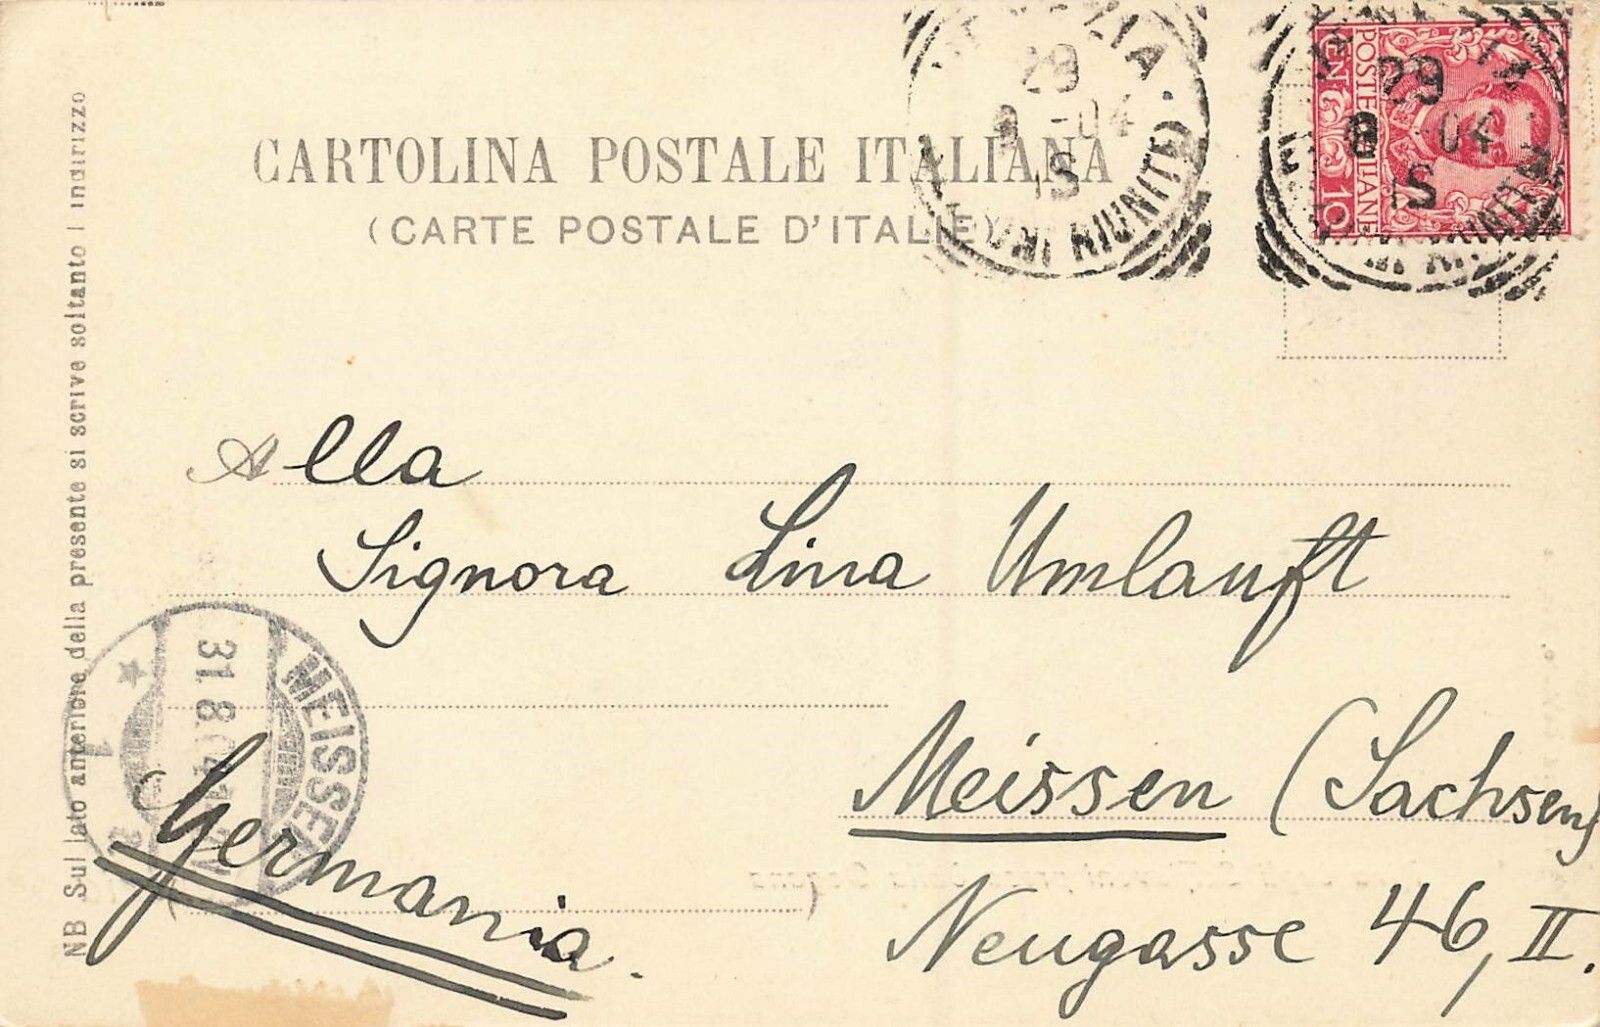 CARTOLINA POSTALE ITALIANA
(CARTE POSTALE D'ITALIE)
29
8 -04
1S
(FERROVIA)
29
8 -04
1S
POSTE ITALIANE
CEN 10
NB Sul lato anteriore della presente si scrive soltanto l indirizzo
Alla
Signora Lina Umlauft
Meissen (Sachsen)
Neugasse 46, II.
Germania.
MEISSEN
31.8.04
1